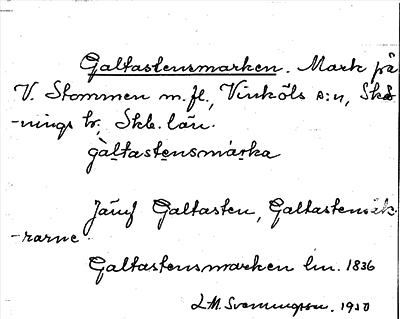 Galtastensmarken. Mark på
V. Stommen m.fl., Vinköls s:n, Skå-
-nings hd, Skb. län.
gàltastensmàrka
Jämf Galtasten, Galtastensåk-
-rarne.
Galtastensmarken lm. 1836
L.M. Svenungsson. 1910